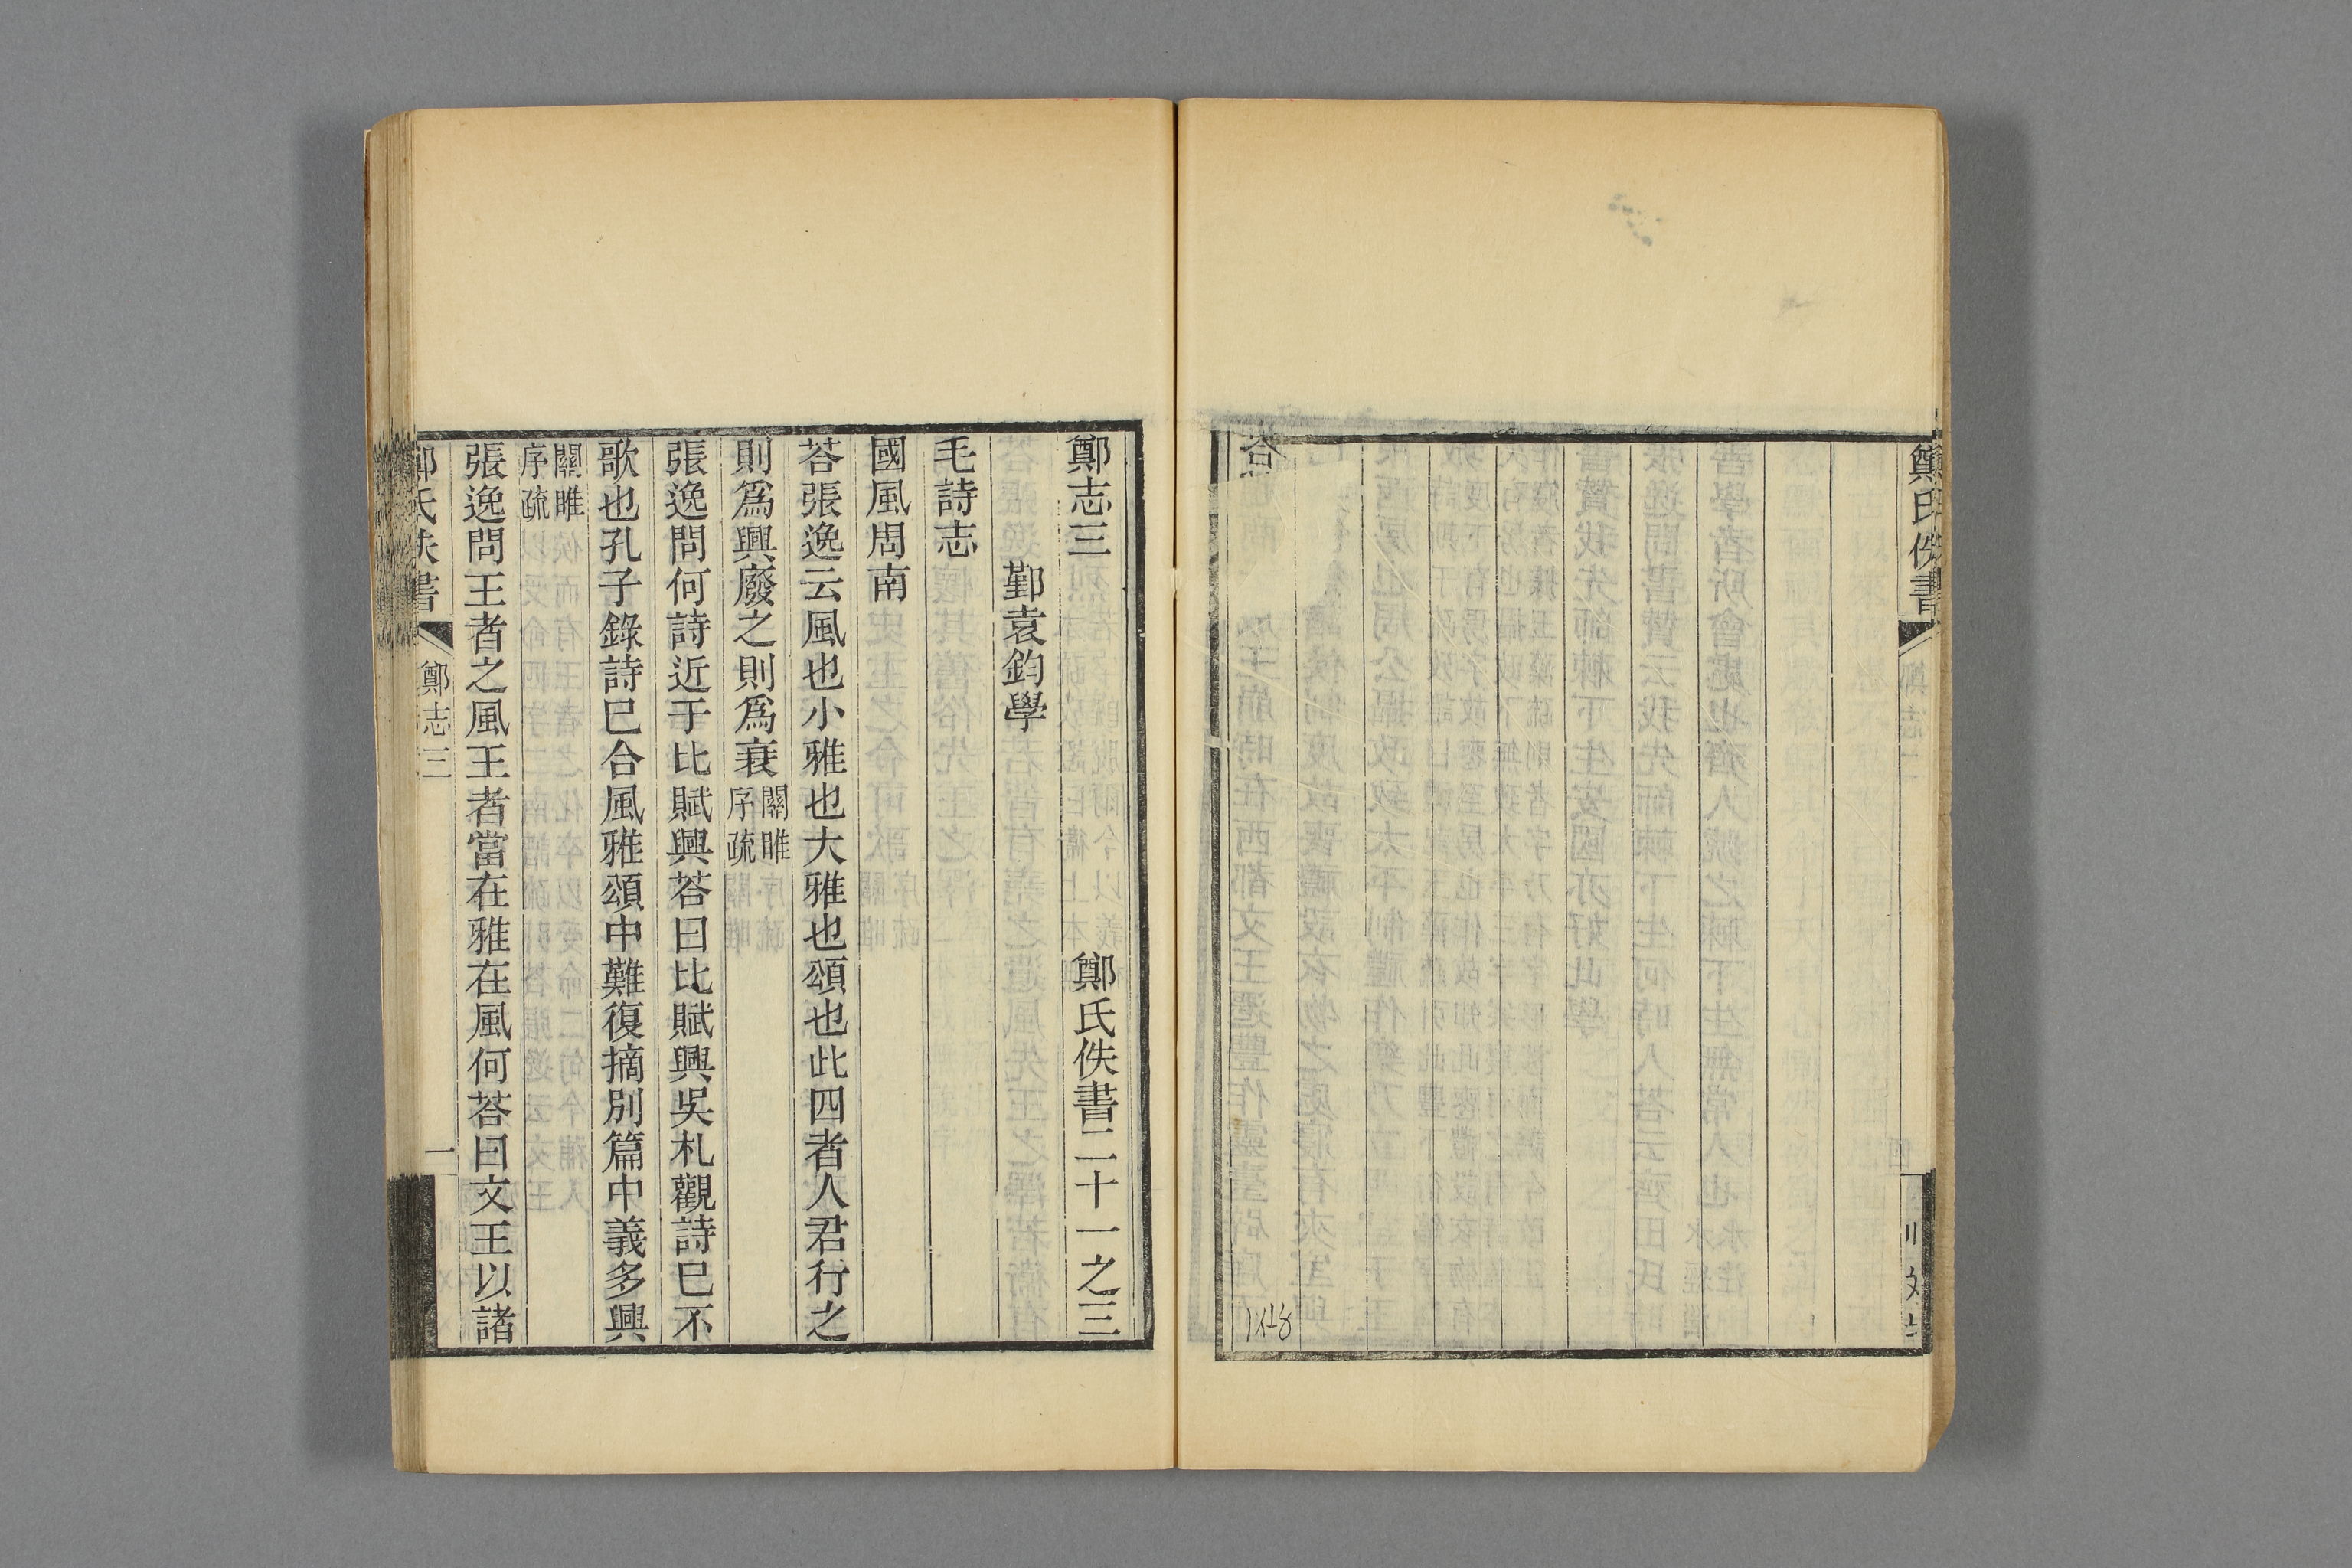 鄭氏佚書
鄭志三 鄭氏佚書二十一之三
鄞袁鈞學
毛詩志
國風周南
荅張逸云風也小雅也大雅也頌也此四者人君行之
則爲興廢之則爲衰關雎序疏
張逸問何詩近于比賦興荅曰比賦興吳札觀詩巳不
歌也孔子錄詩巳合風雅頌中難復摘別篇中義多興
關雎序疏
張逸問王者之風王者當在雅在風何荅曰文王以諸
鄭氏佚書 鄭志三 一